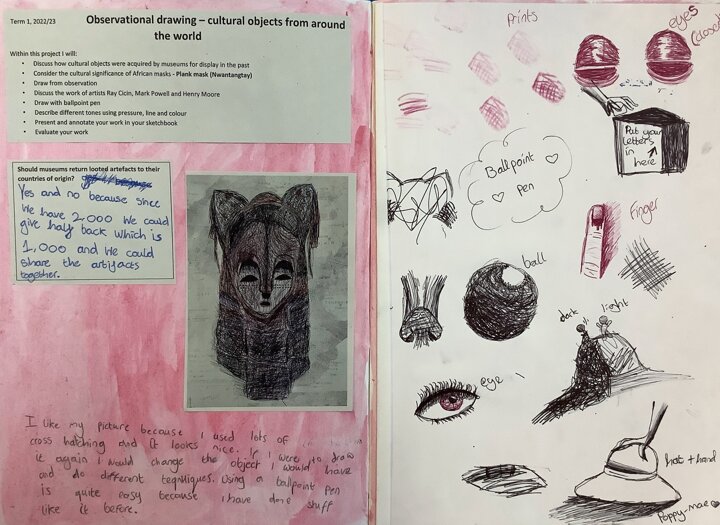 Term 1, 2022/23
Observational drawing – cultural objects from around
the world
Within this project I will:
• Discuss how cultural objects were acquired by museums for display in the past
• Consider the cultural significance of African masks - Plank mask (Nwantangtay)
• Draw from observation
• Discuss the work of artists Ray Cicin, Mark Powell and Henry Moore
• Draw with ballpoint pen
• Describe different tones using pressure, line and colour
• Present and annotate your work in your sketchbook
• Evaluate your work
Should museums return looted artefacts to their
countries of origin?
Yes and no because since
we have 2,000 we could
give half back which is
1,000 and we could
share the artifacts
together.
I like my picture because I used lots of
cross hatching and it looks nice. If I were to draw
it again I would change the object I would have
and do different tequniques. Using a ballpoint pen
is quite easy because I have done stuff
like it before.
Prints
eyes
(closed)
Put your
letters
in
here
Ballpoint
pen
Finger
ball
dark
light
eye
hat + hand
Poppy-mae